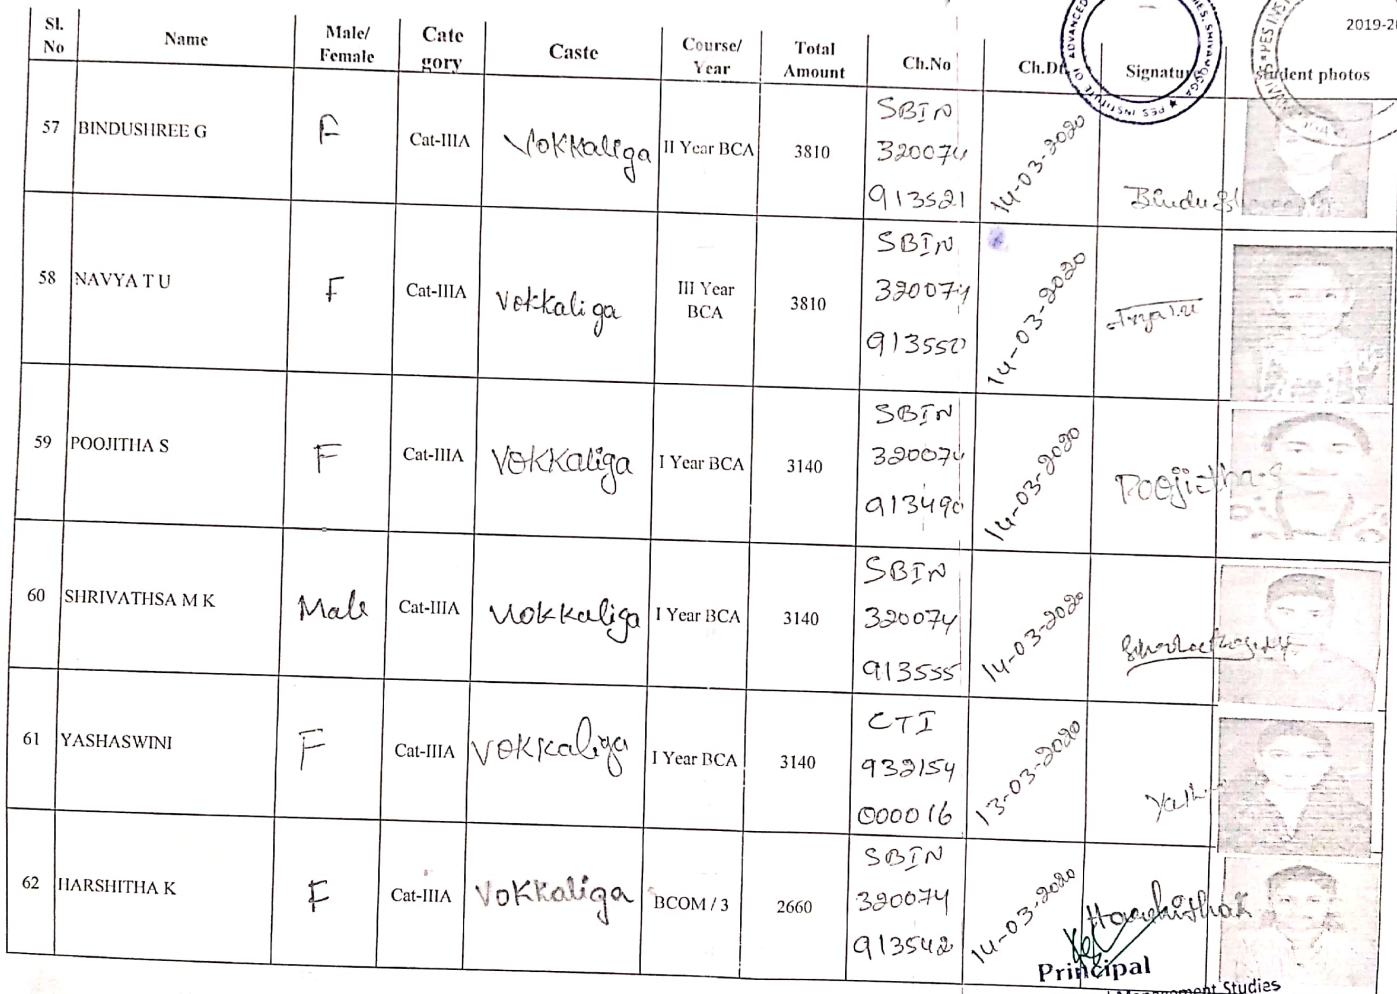 2019-20
Sl. No Name Male/ Female Cate gory Caste Course/ Year Total Amount Ch.No Ch.Dt Signature student photos
57 BINDUSHREE G F Cat-IIIA Vokkaliga II Year BCA 3810 SBIN 320074 913521 14-03-2020
58 NAVYA T U F Cat-IIIA Vokkaliga III Year BCA 3810 SBIN 320074 14-03-2020
59 POOJITHA S F Cat-IIIA Vokkaliga I Year BCA 3140 SBIN 320074 913490 14-03-2020 Poojitha.S
60 SHRIVATHSA M K Male Cat-IIIA Vokkaliga I Year BCA 3140 SBIN 320074 913555 14-03-2020
61 YASHASWINI F Cat-IIIA Vokkaliga I Year BCA 3140 CTI 932154 000016 13-03-2020
62 HARSHITHA K F Cat-IIIA Vokkaliga BCOM / 3 2660 SBIN 320074 913542 14-03-2020 Harshitha K
Principal
Management Studies
PES INSTITUTE OF ADVANCED
SHIVAMOGGA